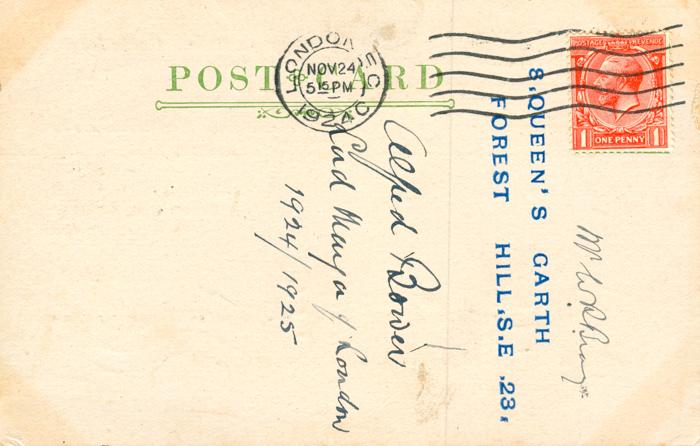 POST CARD
LONDON E.C
NOV 24
5.15 PM
1924
POSTAGE REVENUE
1 ONE PENNY 1
Alfred Bower
Lord Mayor of London
1924/1925
8, QUEEN'S GARTH
FOREST HILL, S.E .23,
Mr W.R.